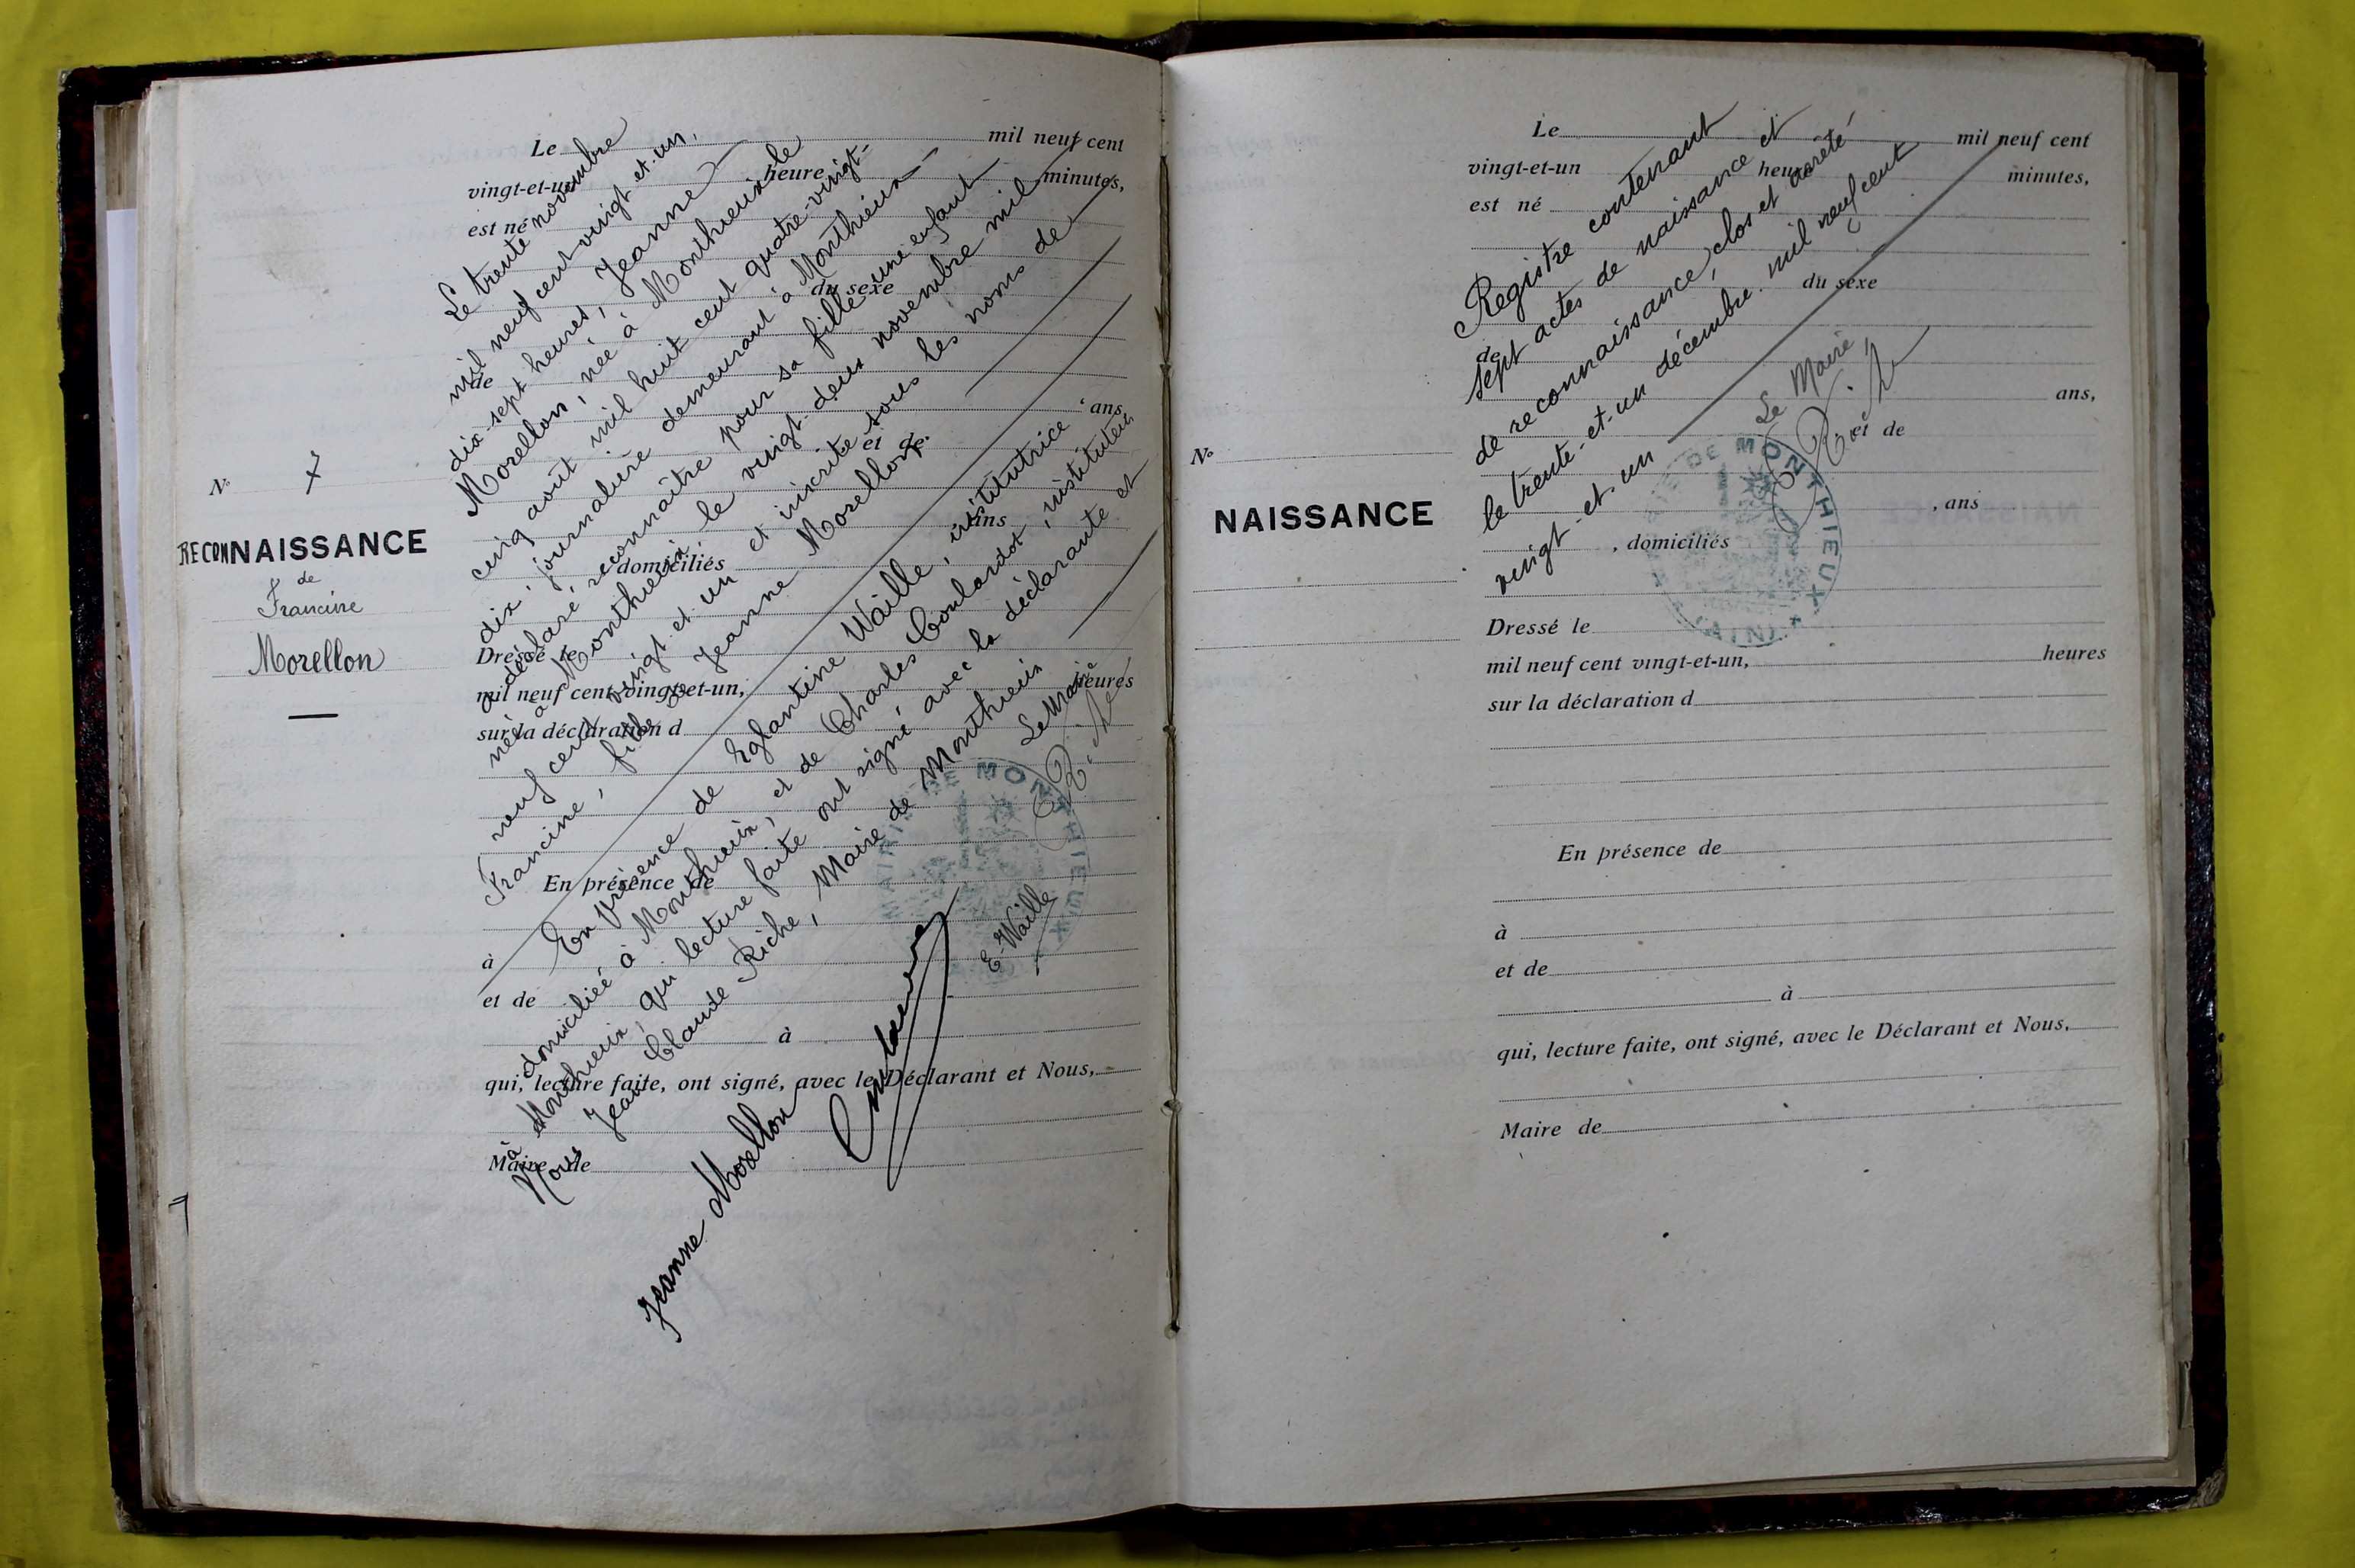 N° 7
RECONNAISSANCE
de
Francine
Morellon
Le mil neuf cent
vingt-et-un heure minutes,
est né
du sexe
de
ans
et de
ans
domiciliés
Dressé le
mil neuf cent vingt-et-un, heures
sur la déclaration d
En présence de
à
et de
à
qui, lecture faite, ont signé, avec le Déclarant et Nous,
Maire de
Le trente novembre
mil neuf cent vingt et un,
dix-sept heures, Jeanne
Morellon, née à Monthieux le
cinq août mil huit cent quatre-vingt-
dix, journalière demeurant à Monthieux
a déclaré reconnaître pour sa fille une enfant
née à Monthieux, le vingt-deux novembre mil
neuf cent vingt et un et inscrite sous les noms de
Francine, fille de Jeanne Morellon.
En présence de Eglantine Waille, institutrice
domiciliée à Monthieux, et de Charles Coulardot, instituteur
à Monthieux, qui lecture faite ont signé avec la déclarante et
Nous Jean Claude Riche, Maire de Monthieux
Le Maire
MAIRIE DE MONTHIEUX
E. Waille
Jeanne Morellon
N°
NAISSANCE
Le mil neuf cent
vingt-et-un heure minutes,
est né
du sexe
de
ans,
et de
, ans
, domiciliés
Dressé le
mil neuf cent vingt-et-un, heures
sur la déclaration d
En présence de
à
et de
à
qui, lecture faite, ont signé, avec le Déclarant et Nous,
Maire de
Registre contenant
sept actes de naissance et
de reconnaissance, clos et arrêté
le trente-et-un décembre mil neuf cent
vingt-et-un
Le Maire,
MAIRIE DE MONTHIEUX
(AIN)